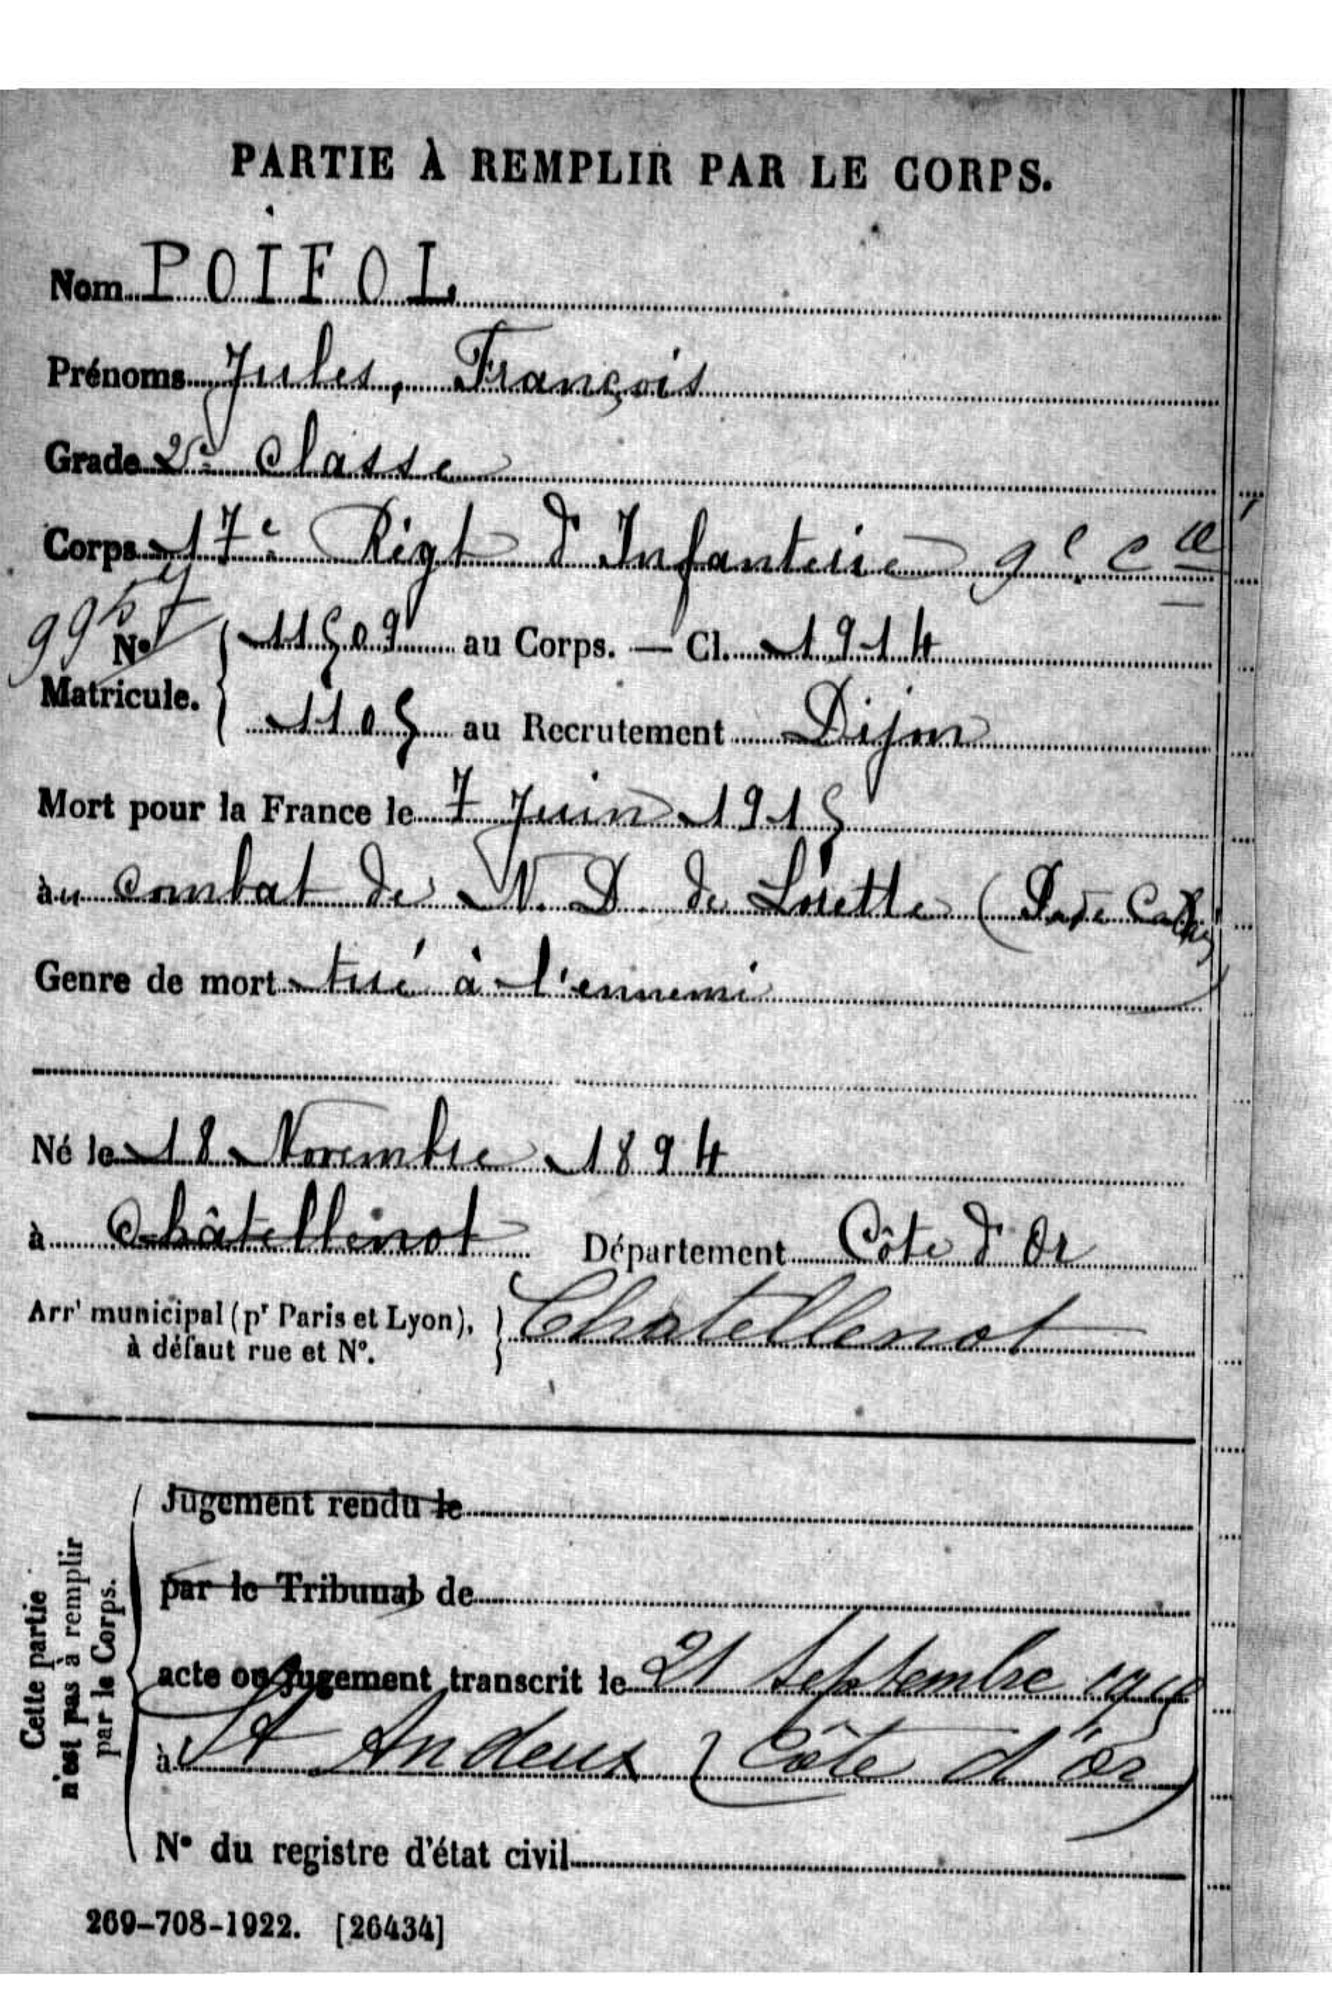 PARTIE À REMPLIR PAR LE CORPS.
Nom POIFOL
Prénoms Jules, François
Grade 2e classe
Corps 17e Régt d'Infanterie 9e Cie
N° 11509 au Corps. — Cl. 1914
Matricule. 1105 au Recrutement Dijon
Mort pour la France le 7 Juin 1915
au combat de N. D. de Lorette (Pas de Calais)
Genre de mort tué à l'ennemi
Né le 18 Novembre 1894
à Châtellenot Département Côte d'Or
Arrt municipal (pr Paris et Lyon), Chatellenot
à défaut rue et N°.
Cette partie
n'est pas à remplir
par le Corps.
Jugement rendu le
par le Tribunal de
acte ou jugement transcrit le 21 Septembre
à St Andeux (Côte d'Or)
N° du registre d'état civil
269-708-1922. [26434]